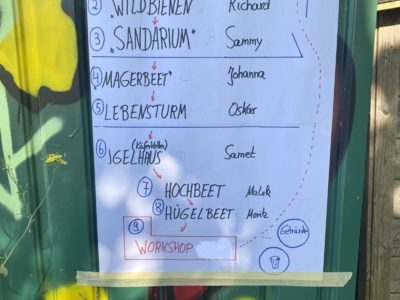 ② „WILDBIENEN" Richard
③ „SANDARIUM" Sammy
④ „MAGERBEET" Johanna
⑤ LEBENSTURM Oskar
⑥ IGELHAUS (Käferkeller) Samet
⑦ HOCHBEET Malek
⑧ HÜGELBEET Moritz
⑨ WORKSHOP
Getränke